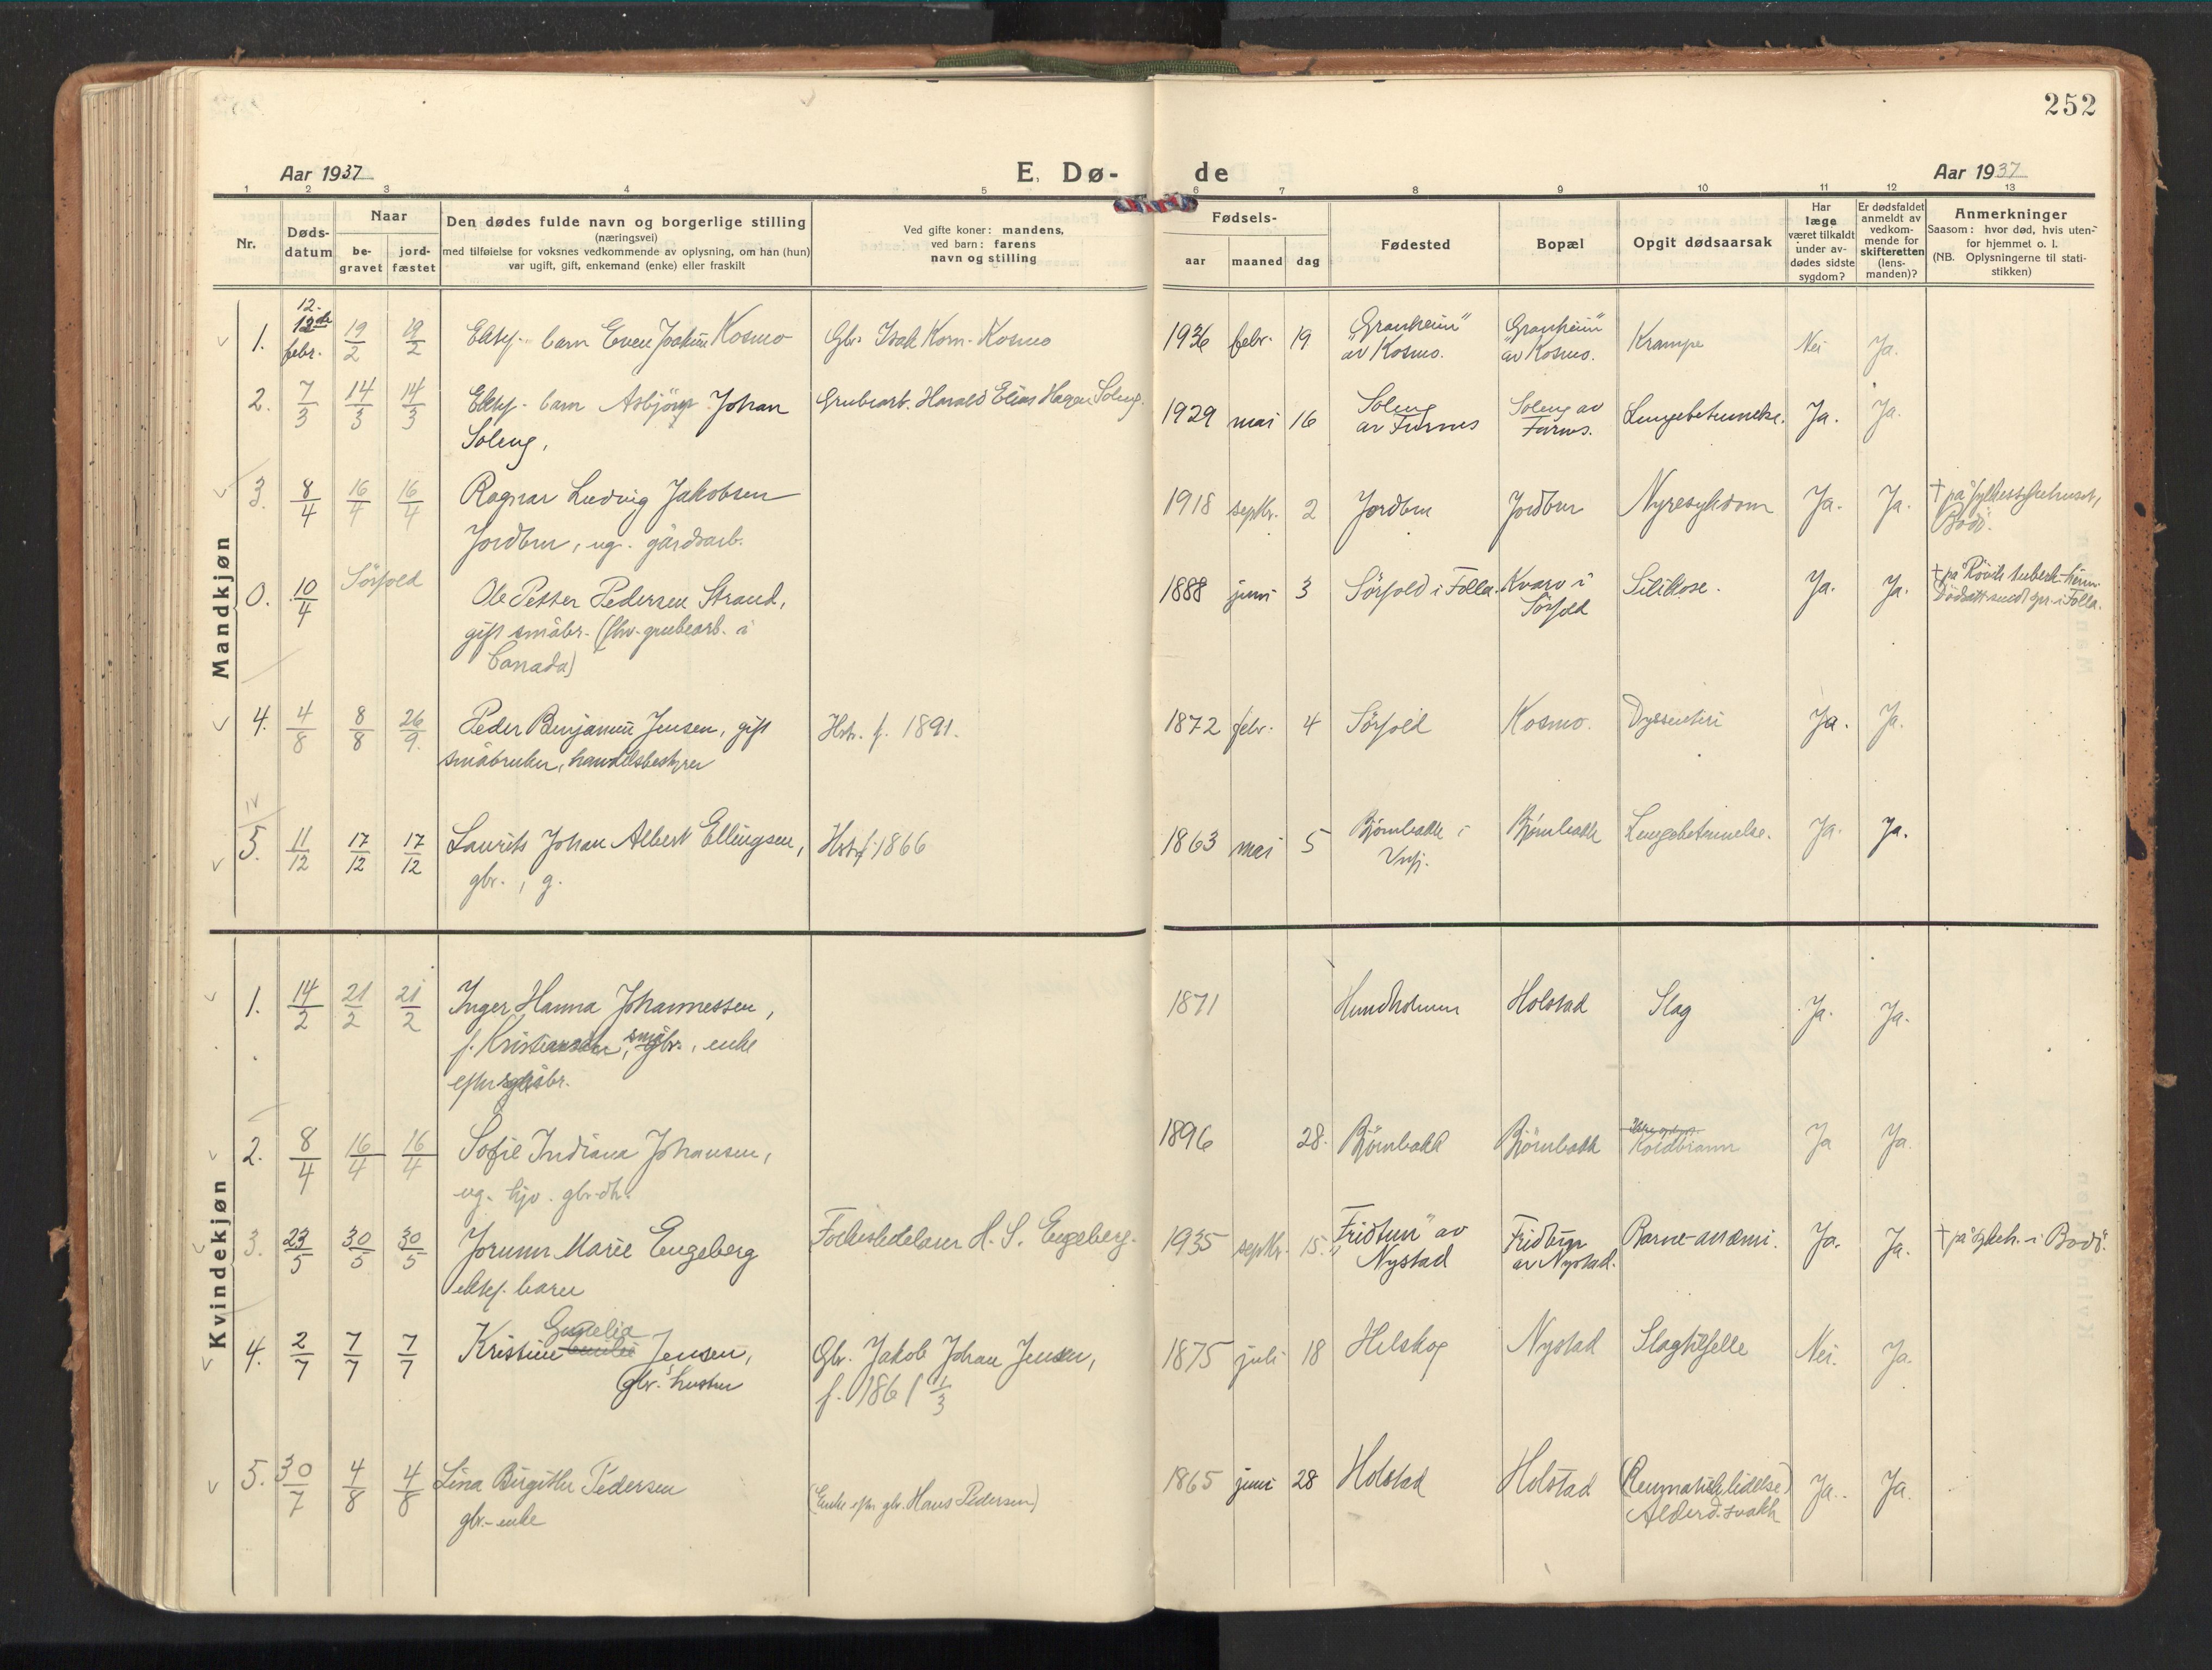 252
Aar 1937
E. Dø-
de
Aar 1937
1 2 3 4 5 6 7 8 9 10 11 12 13
Nr.
Døds-
datum
Naar
be-
gravet
jord-
fæstet
Den dødes fulde navn og borgerlige stilling
(næringsvei)
med tilføielse for voksnes vedkommende av oplysning, om han (hun)
var ugift, gift, enkemand (enke) eller fraskilt
Ved gifte koner: mandens,
ved barn: farens
navn og stilling
Fødsels-
aar maaned dag
Fødested
Bopæl
Opgit dødsaarsak
Har
læge
været tilkaldt
under av-
dødes sidste
sygdom?
Er dødsfaldet
anmeldt av
vedkom-
mende for
skifteretten
(lens-
manden)?
Anmerkninger
Saasom: hvor død, hvis uten-
for hjemmet o. l.
(NB. Oplysningerne til stati-
stikken)
Mandkjøn
12.
1. 12te febr. 19/2 19/2 Ektef. barn Even Joakim Kosmo Gbr. Isak Korn. Kosmo 1936 febr. 19 "Granheim" "Granheim" Krampe Nei Ja.
av Kosmo. av Kosmo.
2. 7/3 14/3 14/3 Ektef. barn Asbjörn Johan Grubearb. Harald Elias Hagen Soleng. 1929 mai 16 Soleng Soleng av Lungebetennelse. Ja. Ja.
Soleng, av Furnes Furnes.
3. 8/4 16/4 16/4 Ragnar Ludvig Jakobsen 1918 septbr. 2 Jordbru Jordbru Nyresykdom Ja. Ja. † på fylkessykehuset,
Jordbru, ug. gårdsarb. Bodö.
0. 10/4 Sörfold Ole Petter Pedersen Strand, 1888 juni 3 Sörfold i Folla. Kvarv i Silikose. Ja. Ja. † på Rövik tuberk.-heim.
gift småbr. (fhv. grubearb. i Sörfold
Canada)
4. 4/8 8/8 26/9. Peder Benjamin Jensen, gift Hstr. f. 1891. 1872 febr. 4 Sörfold Kosmo. Dyssenteri Ja. Ja.
småbruker, handelsbestyrer
5. 11/12 17/12 17/12 Laurits Johan Albert Ellingsen, Hstr. f. 1866 1863 mai 5 Bjørnbakk i Bjørnbakk Lungebetennelse. Ja. Ja.
gbr., g.
Kvindekjøn
1. 14/2 21/2 21/2 Inger Hanna Johannessen, 1871 Hundholmen Holstad Slag Ja. Ja.
f. Kristiansen, gbr., enke
efter småbr.
2. 8/4 16/4 16/4 Sofie Indiana Johansen, 1896 28. Bjørnbakk Bjørnbakk Koldbrann Ja Ja.
ug. hjv. gbr.-dtr.
3. 23/5 30/5 30/5 Jorunn Marie Engeberg Folkeskolelærer H. S. Engeberg. 1935 septbr. 15. "Fridtun" av Fridtun Barne-anæmi. Ja. Ja. † på sykeh. i Bodö.
ektef. barn Nystad av Nystad.
4. 2/7 7/7 7/7 Kristine Jensen, Gbr. Jakob Johan Jensen, 1875 juli 18 Helskog Nystad Slagtilfelle Nei. Ja.
gbr. hustru f. 1861 1/3
5. 30/7 4/8 4/8 Lina Birgitte Pedersen (Enke efter gbr. Hans Pedersen) 1865 juni 28 Holstad Holstad (Reumatisk lidelse) Ja. Ja.
gbr.-enke Alderd.svakh